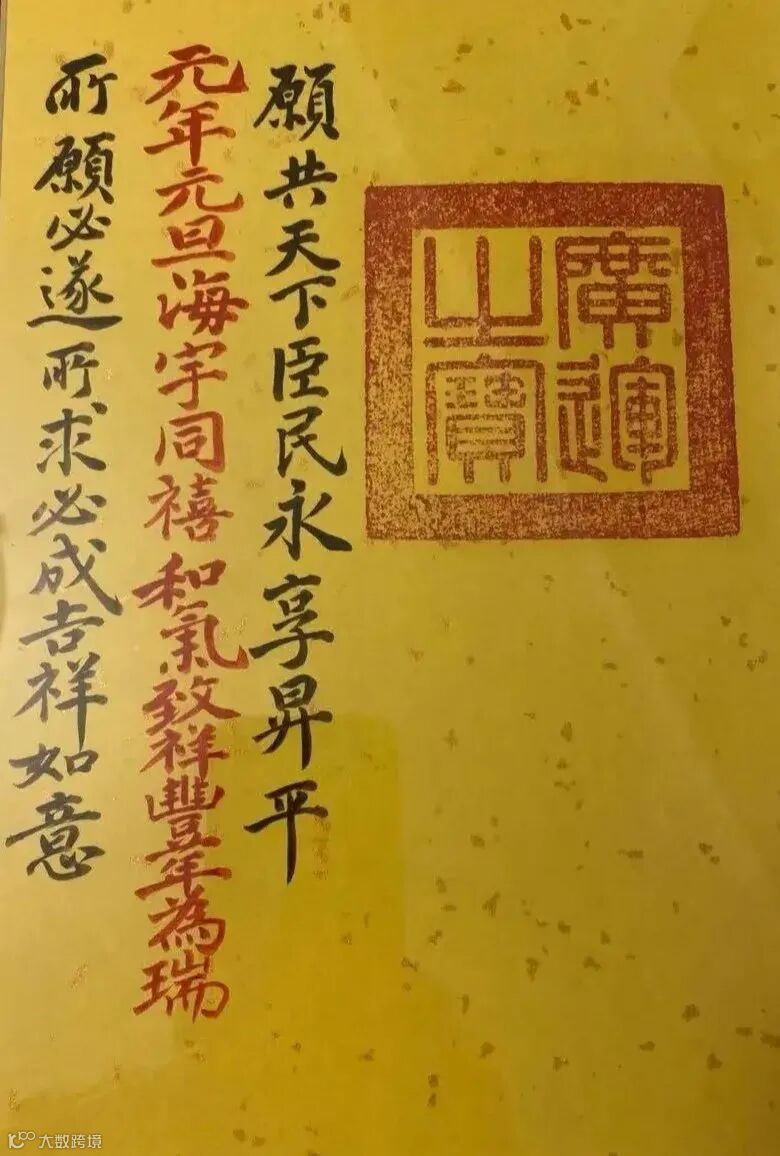 廣運之寶
願共天下臣民永享昇平
元年元旦海宇同禧和氣致祥豐年為瑞
所願必遂所求必成吉祥如意
大数跨境